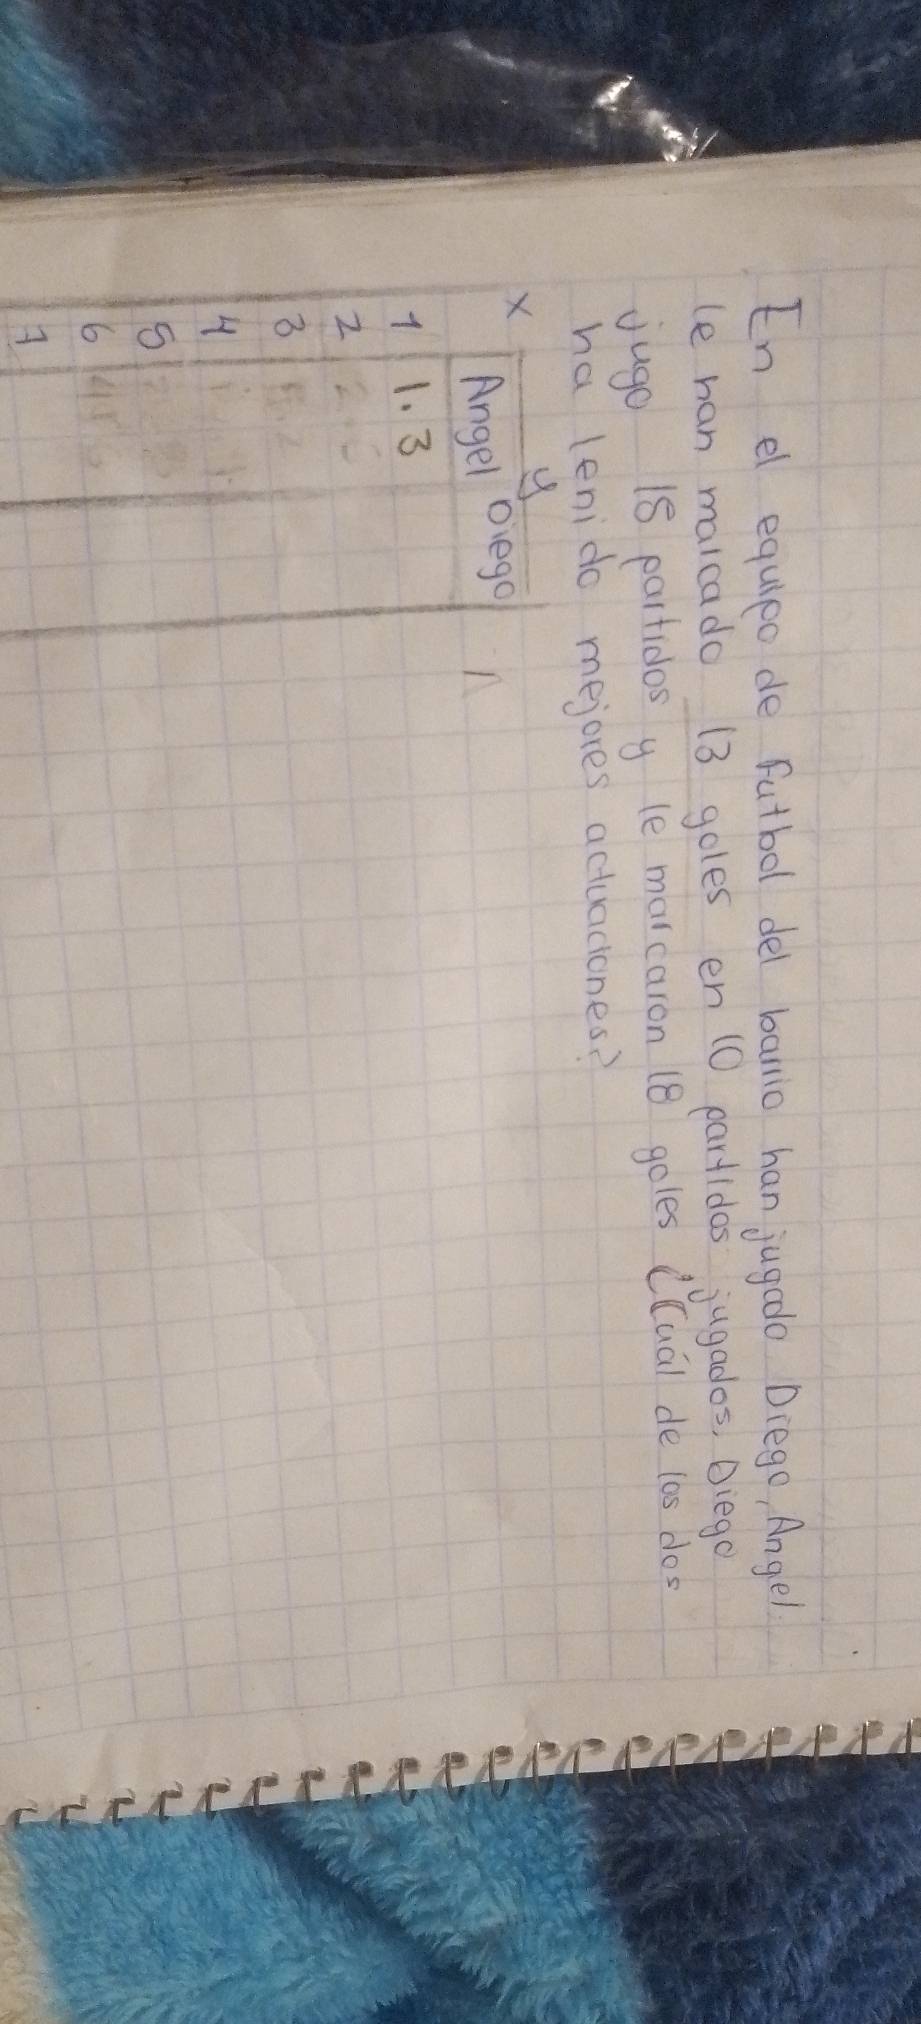 En el equipo de futbol del barrio han jugado Diego, Angel.
le han marcado 13 goles en 10 partidos jugados, Diego
jugo 18 partidos y le marcaron 18 goles ¿Cuál de los dos
ha tenido mejores actuaciones?
x y
Angel Diego
1 1.3
2
3
4
5
6
7